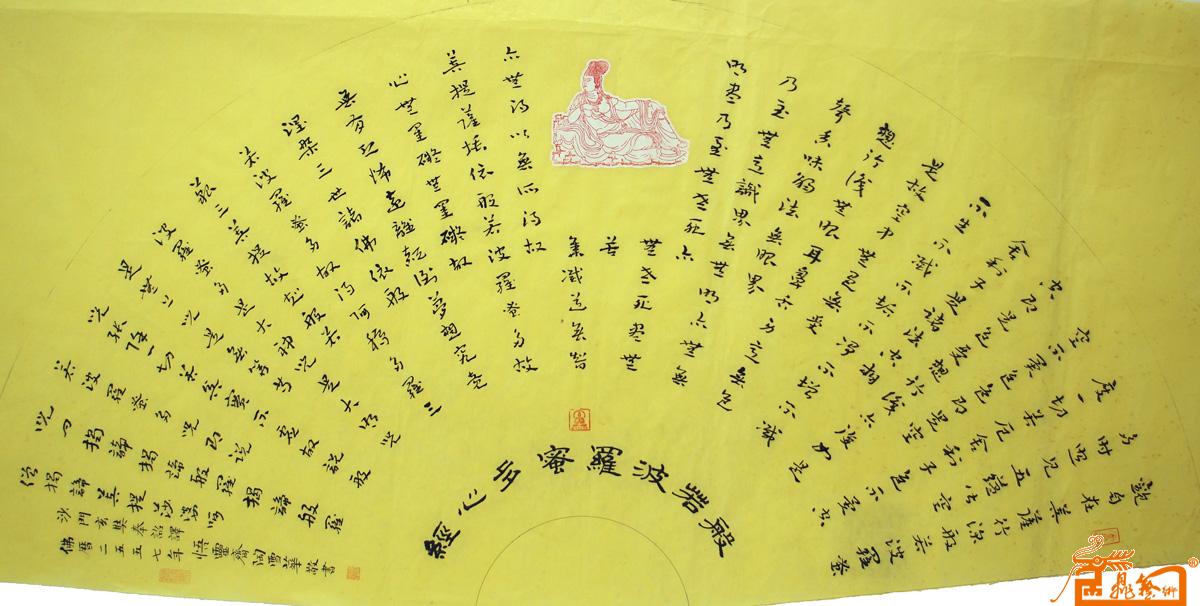 觀自在菩薩行深般若波羅蜜
多時照見五蘊皆空
度一切苦厄舍利子色不異
空不異色色即是空
空即是色受想行識亦復如是
舍利子是諸法空相
不生不滅不垢不淨不增不減
是故空中無色無受
想行識無眼耳鼻舌身意無色
聲香味觸法無眼界
乃至無意識界無無明亦無無
明盡乃至無老死亦
無老死盡無
苦
集滅道無智
亦無得以無所得故
菩提薩埵依般若波羅蜜多故
心無罣礙無罣礙故
無有恐怖遠離顛倒夢想究竟
涅槃三世諸佛依般
若波羅蜜多故得阿耨多羅三
藐三菩提故知般
若波羅蜜多是大神咒是大明咒
是無上咒是無等等
咒能除一切苦真實不虛故說般
若波羅蜜多咒即說
咒曰揭諦揭諦般羅揭諦般羅
僧揭諦菩提莎婆訶
沙門玄奘奉詔譯
佛曆二五五七年悟靈齋陶雪華敬書
般若波羅蜜多心經